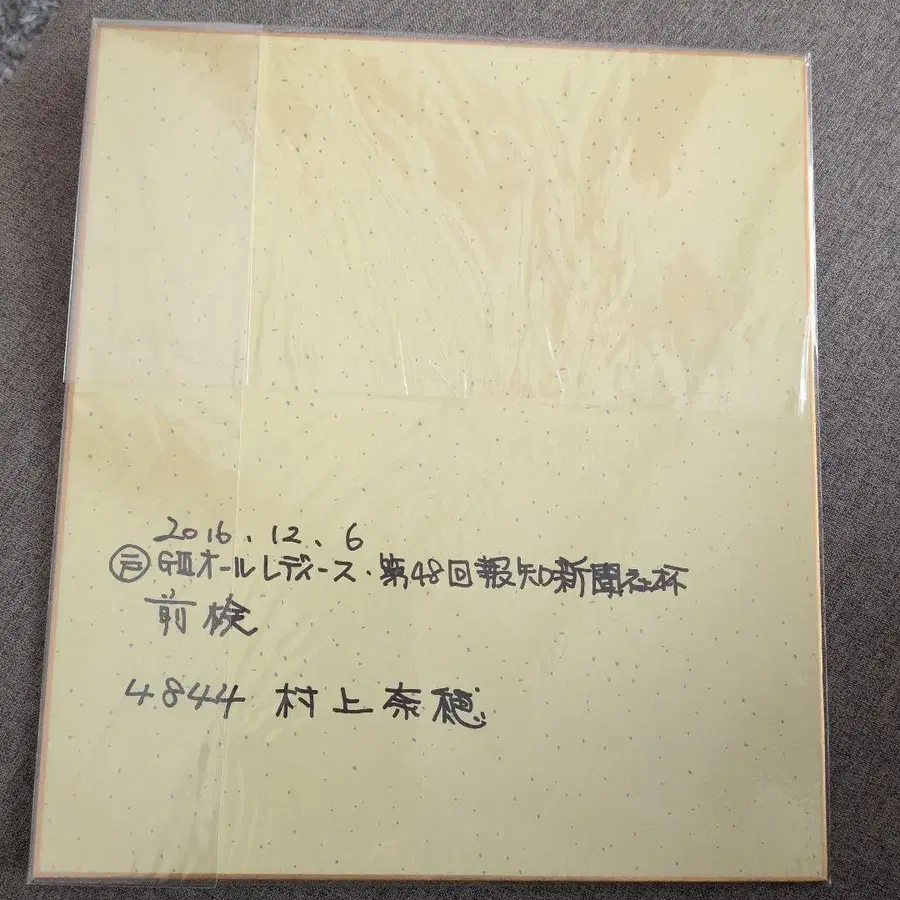 2016.12.6
㋣GⅢオールレディース・第48回報知新聞社杯
前検
4844 村上奈穂